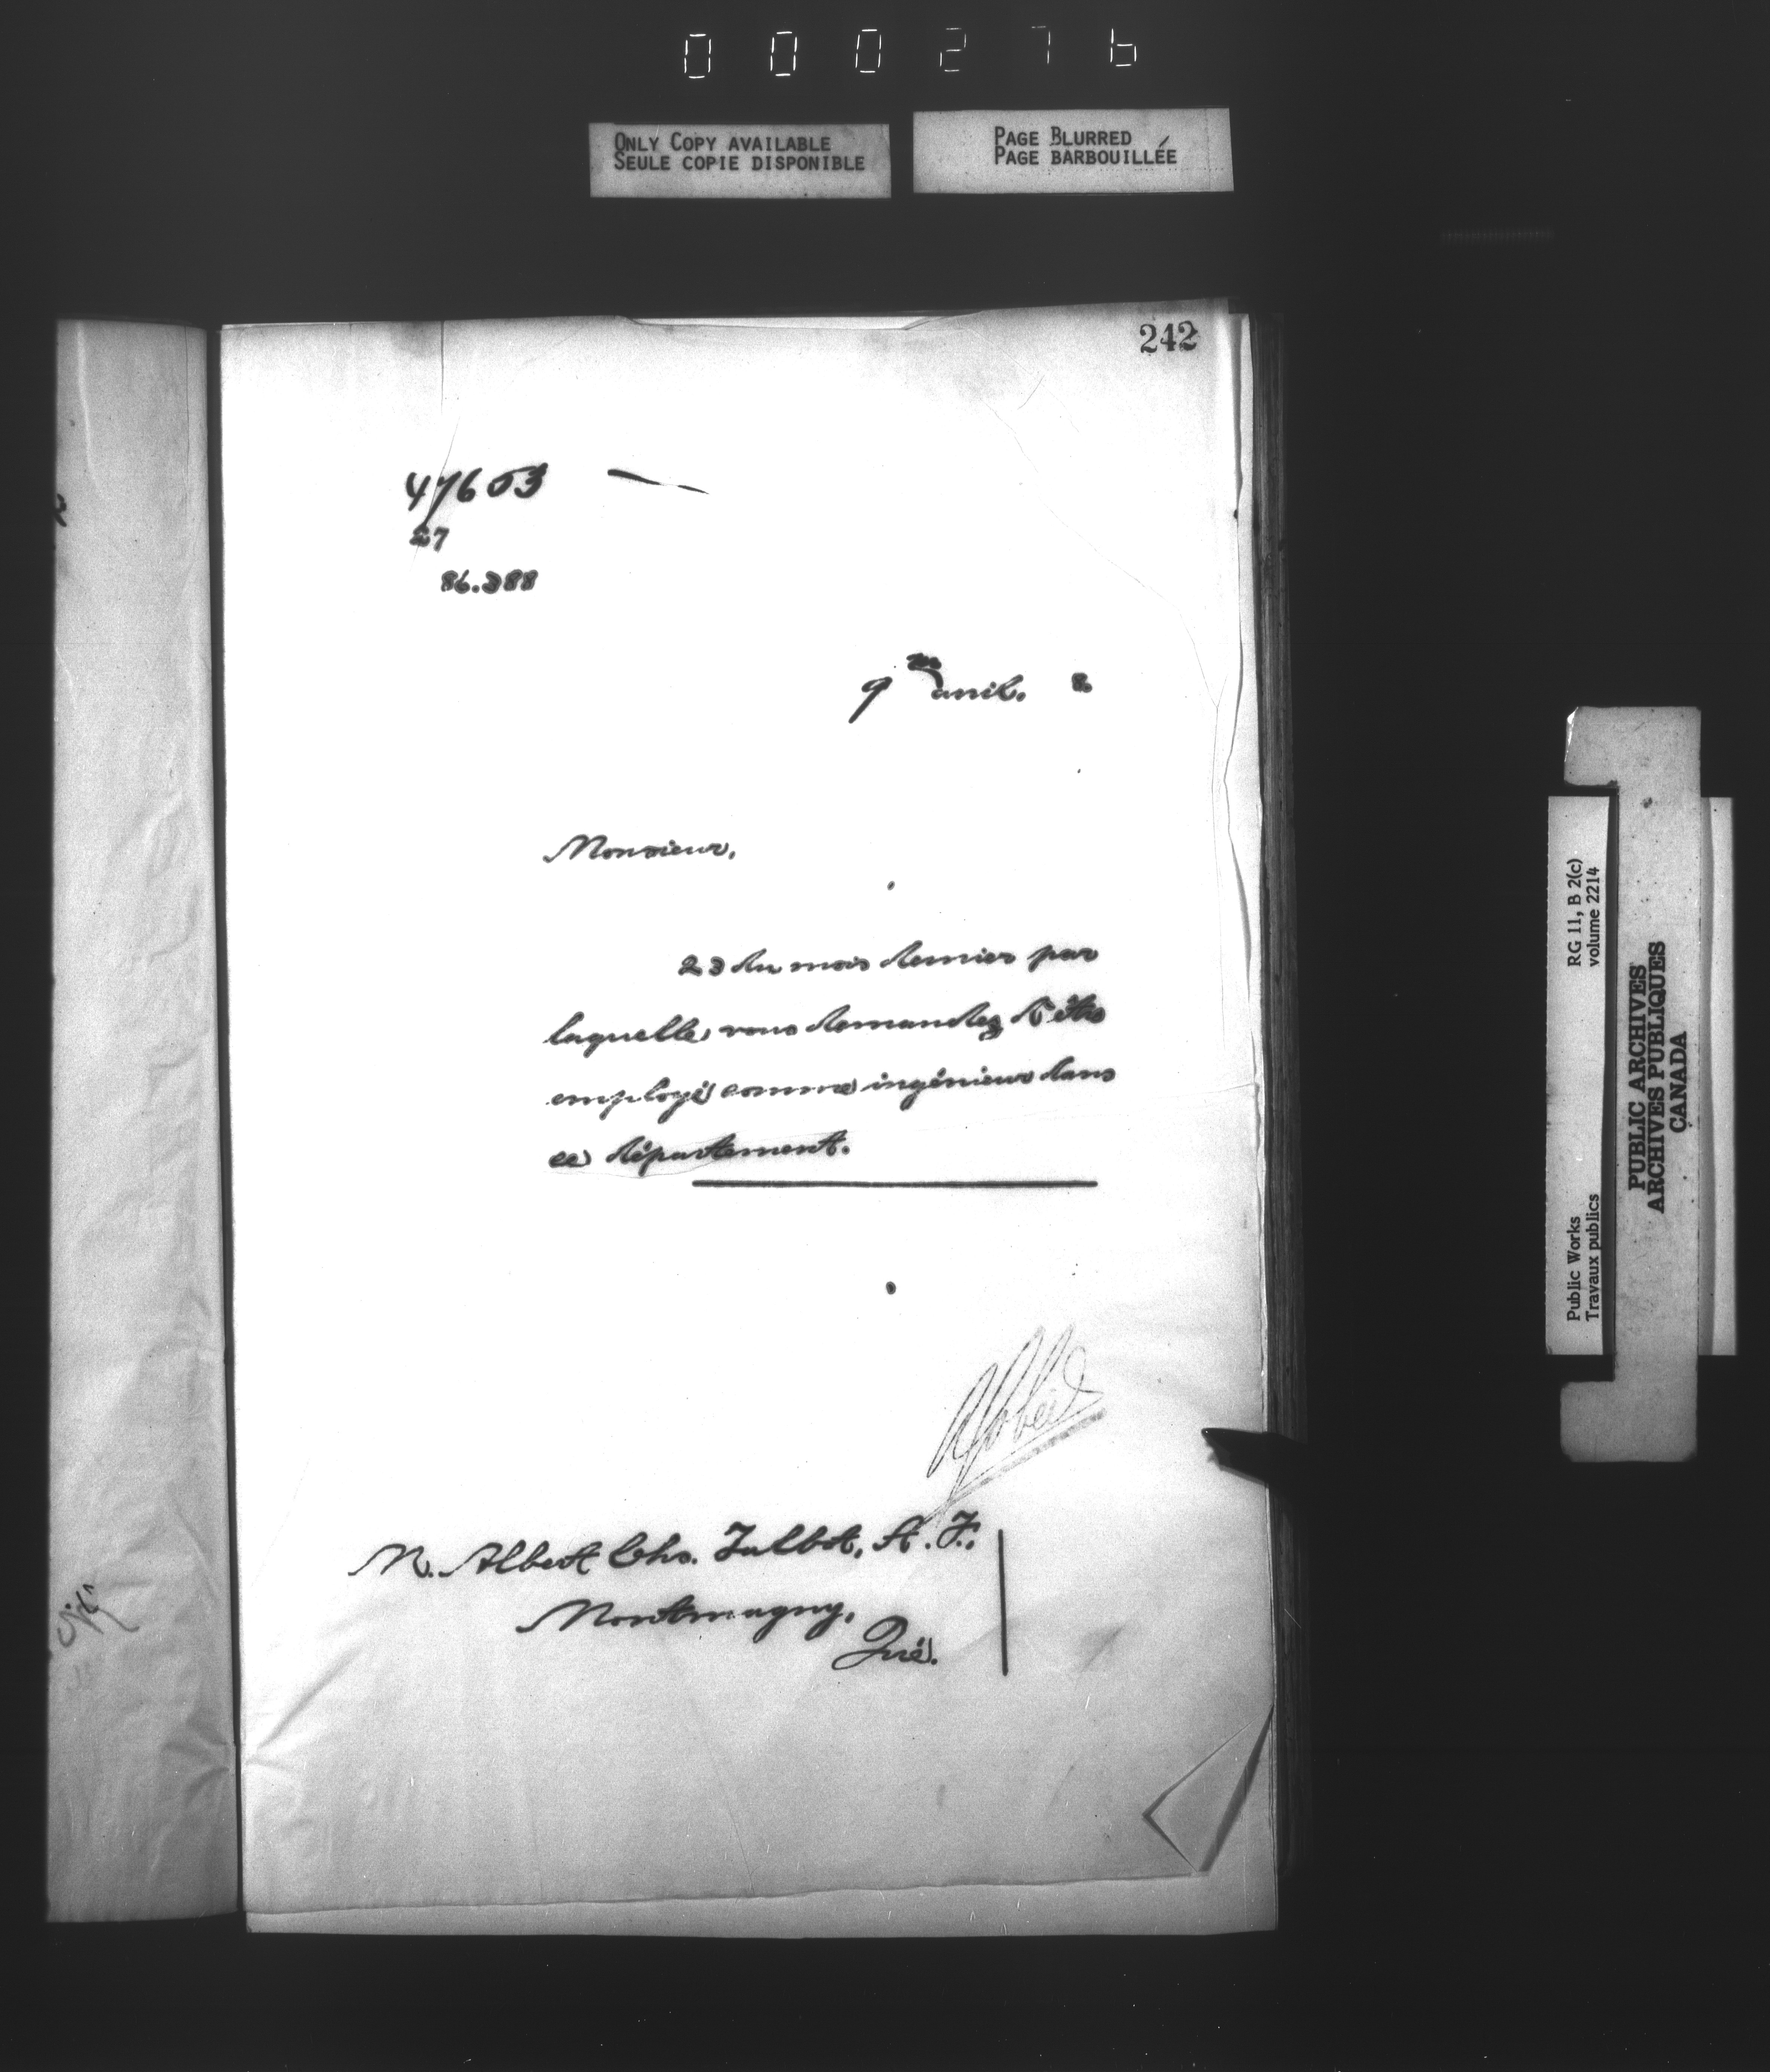 000276
ONLY COPY AVAILABLE
SEULE COPIE DISPONIBLE
PAGE BLURRED
PAGE BARBOUILLÉE
242
47603
27
86.388
9 avril. 8
Monsieur,
23 du mois dernier par
laquelle vous demandez d'être
employé comme ingénieur dans
ce département.
M. Albert Chs. Talbot, A. F.,
Montmagny,
Qué.
RG 11, B 2(c)
volume 2214
Public Works
Travaux publics
PUBLIC ARCHIVES
ARCHIVES PUBLIQUES
CANADA